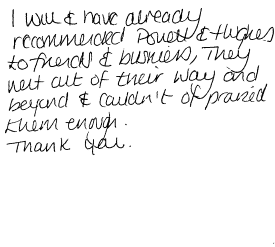 I will & have already
recommended Powell & Hughes
to friends & business, They
went out of their way and
beyond & couldn't of praized
them enough.
Thank you.